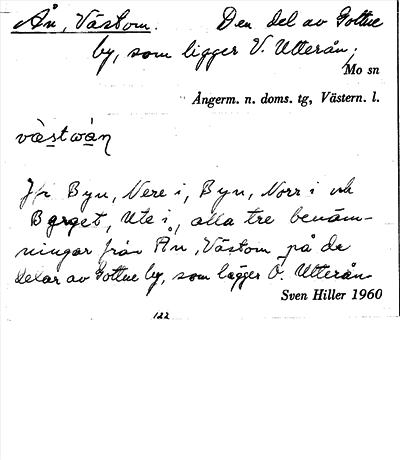 Ån, Västom. Den del av Gottne
by, som ligger V. Utterån.
Mo sn
Ångerm. n. doms. tg, Västern. l.
væ̀stwán
Jfr Byn, Nere i, Byn, Norr i och
Berget, Ute i, alla tre benäm-
ningar från Ån, Västom på de
delar av Gottne by, som ligger Ö. Utterån
Sven Hiller 1960
122